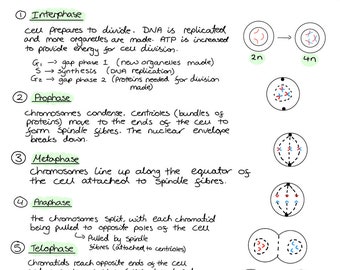 ① Interphase
cell prepares to divide. DNA is replicated
and more organelles are made. ATP is increased
to provide energy for cell division.
G₁ → gap phase 1 (new organelles made)
S → synthesis (DNA replication)
G₂ → gap phase 2 (proteins needed for division made)
2n
4n
② Prophase
chromosomes condense. Centrioles (bundles of
proteins) move to the ends of the cell to
form spindle fibres. The nuclear envelope
breaks down.
③ Metaphase
chromosomes line up along the equator of
the cell attached to spindle fibres.
④ Anaphase
the chromosomes split, with each chromatid
being pulled to opposite poles of the cell
↳ Pulled by spindle
fibres (attached to centrioles)
⑤ Telophase
chromatids reach opposite ends of the cell